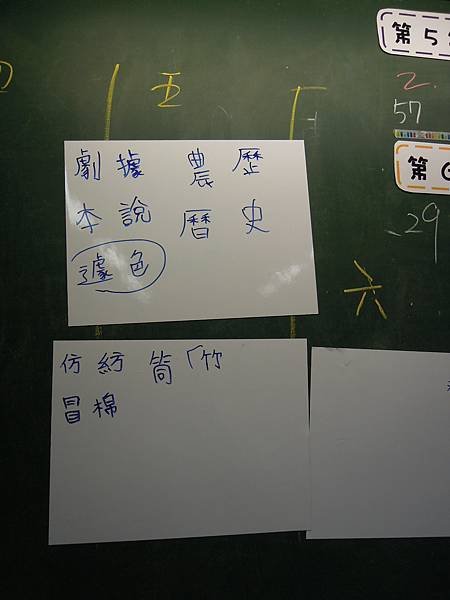 五
第5
2.
57
第6
29
六
劇 據 農 歷
本 說 曆 史
遽色
仿 紡 筒「竹
冒 棉